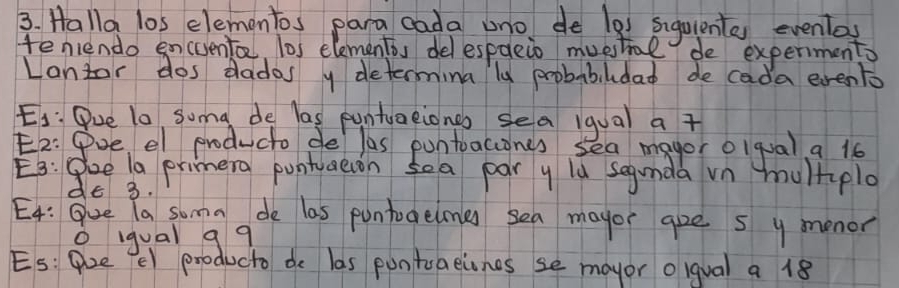 3. Halla los elementos para cada uno de los siguientes eventos
teniendo encuenta los elementos del espacio muestral de experimento
Lanzar dos dados y determina la probabilidad de cada evento
E1: Que la suma de las puntuaciones sea igual a 7
E2: Que el producto de las puntuaciones sea mayor o igual a 16
E3: Que la primera puntuación sea par y la segunda un multiplo
de 3.
E4: Que la suma de las puntuaciones sea mayor que 5 y menor
o igual a 9
E5: Que el producto de las puntuaciones se mayor o igual a 18